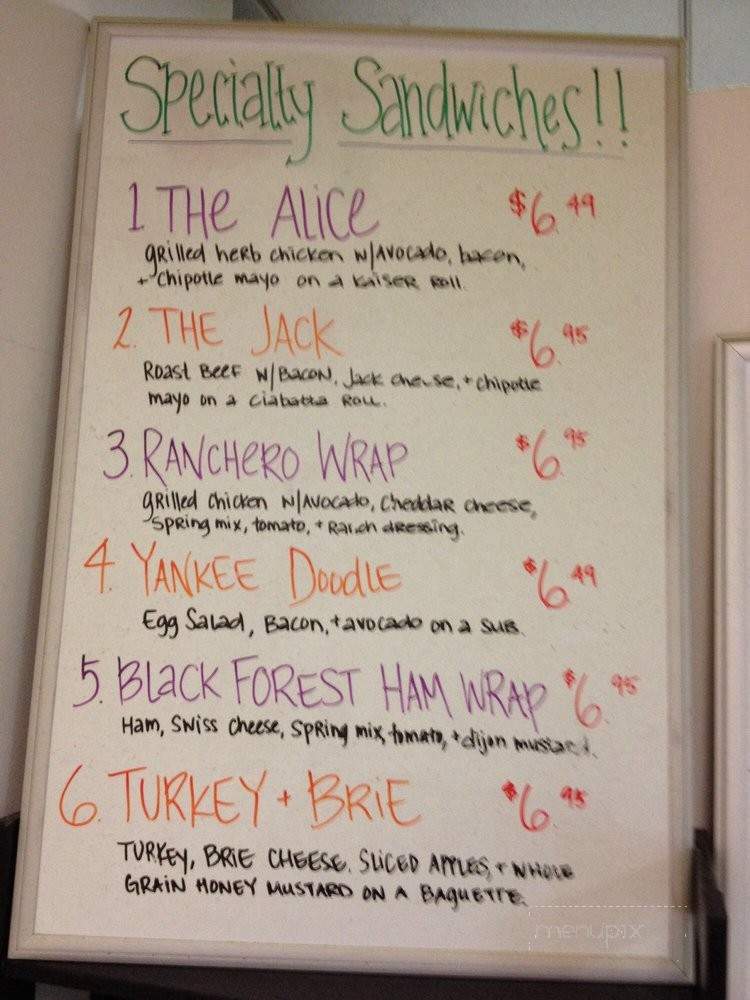 Specialty Sandwiches!!
1 The Alice $6.49
grilled herb chicken w/avocado, bacon,
+ chipotle mayo on a kaiser roll.
2. The Jack $6.95
Roast Beef w/Bacon, Jack cheese, + chipotle
mayo on a ciabatta Roll.
3. Ranchero Wrap $6.95
grilled chicken w/avocado, cheddar cheese,
spring mix, tomato, + Ranch dressing.
4. Yankee Doodle $6.49
Egg Salad, Bacon, + avocado on a sub.
5. Black Forest Ham Wrap $6.95
Ham, Swiss cheese, spring mix, tomato, + dijon mustard.
6. Turkey + Brie $6.95
Turkey, Brie cheese, sliced apples, + whole
grain honey mustard on a baguette.
menupix